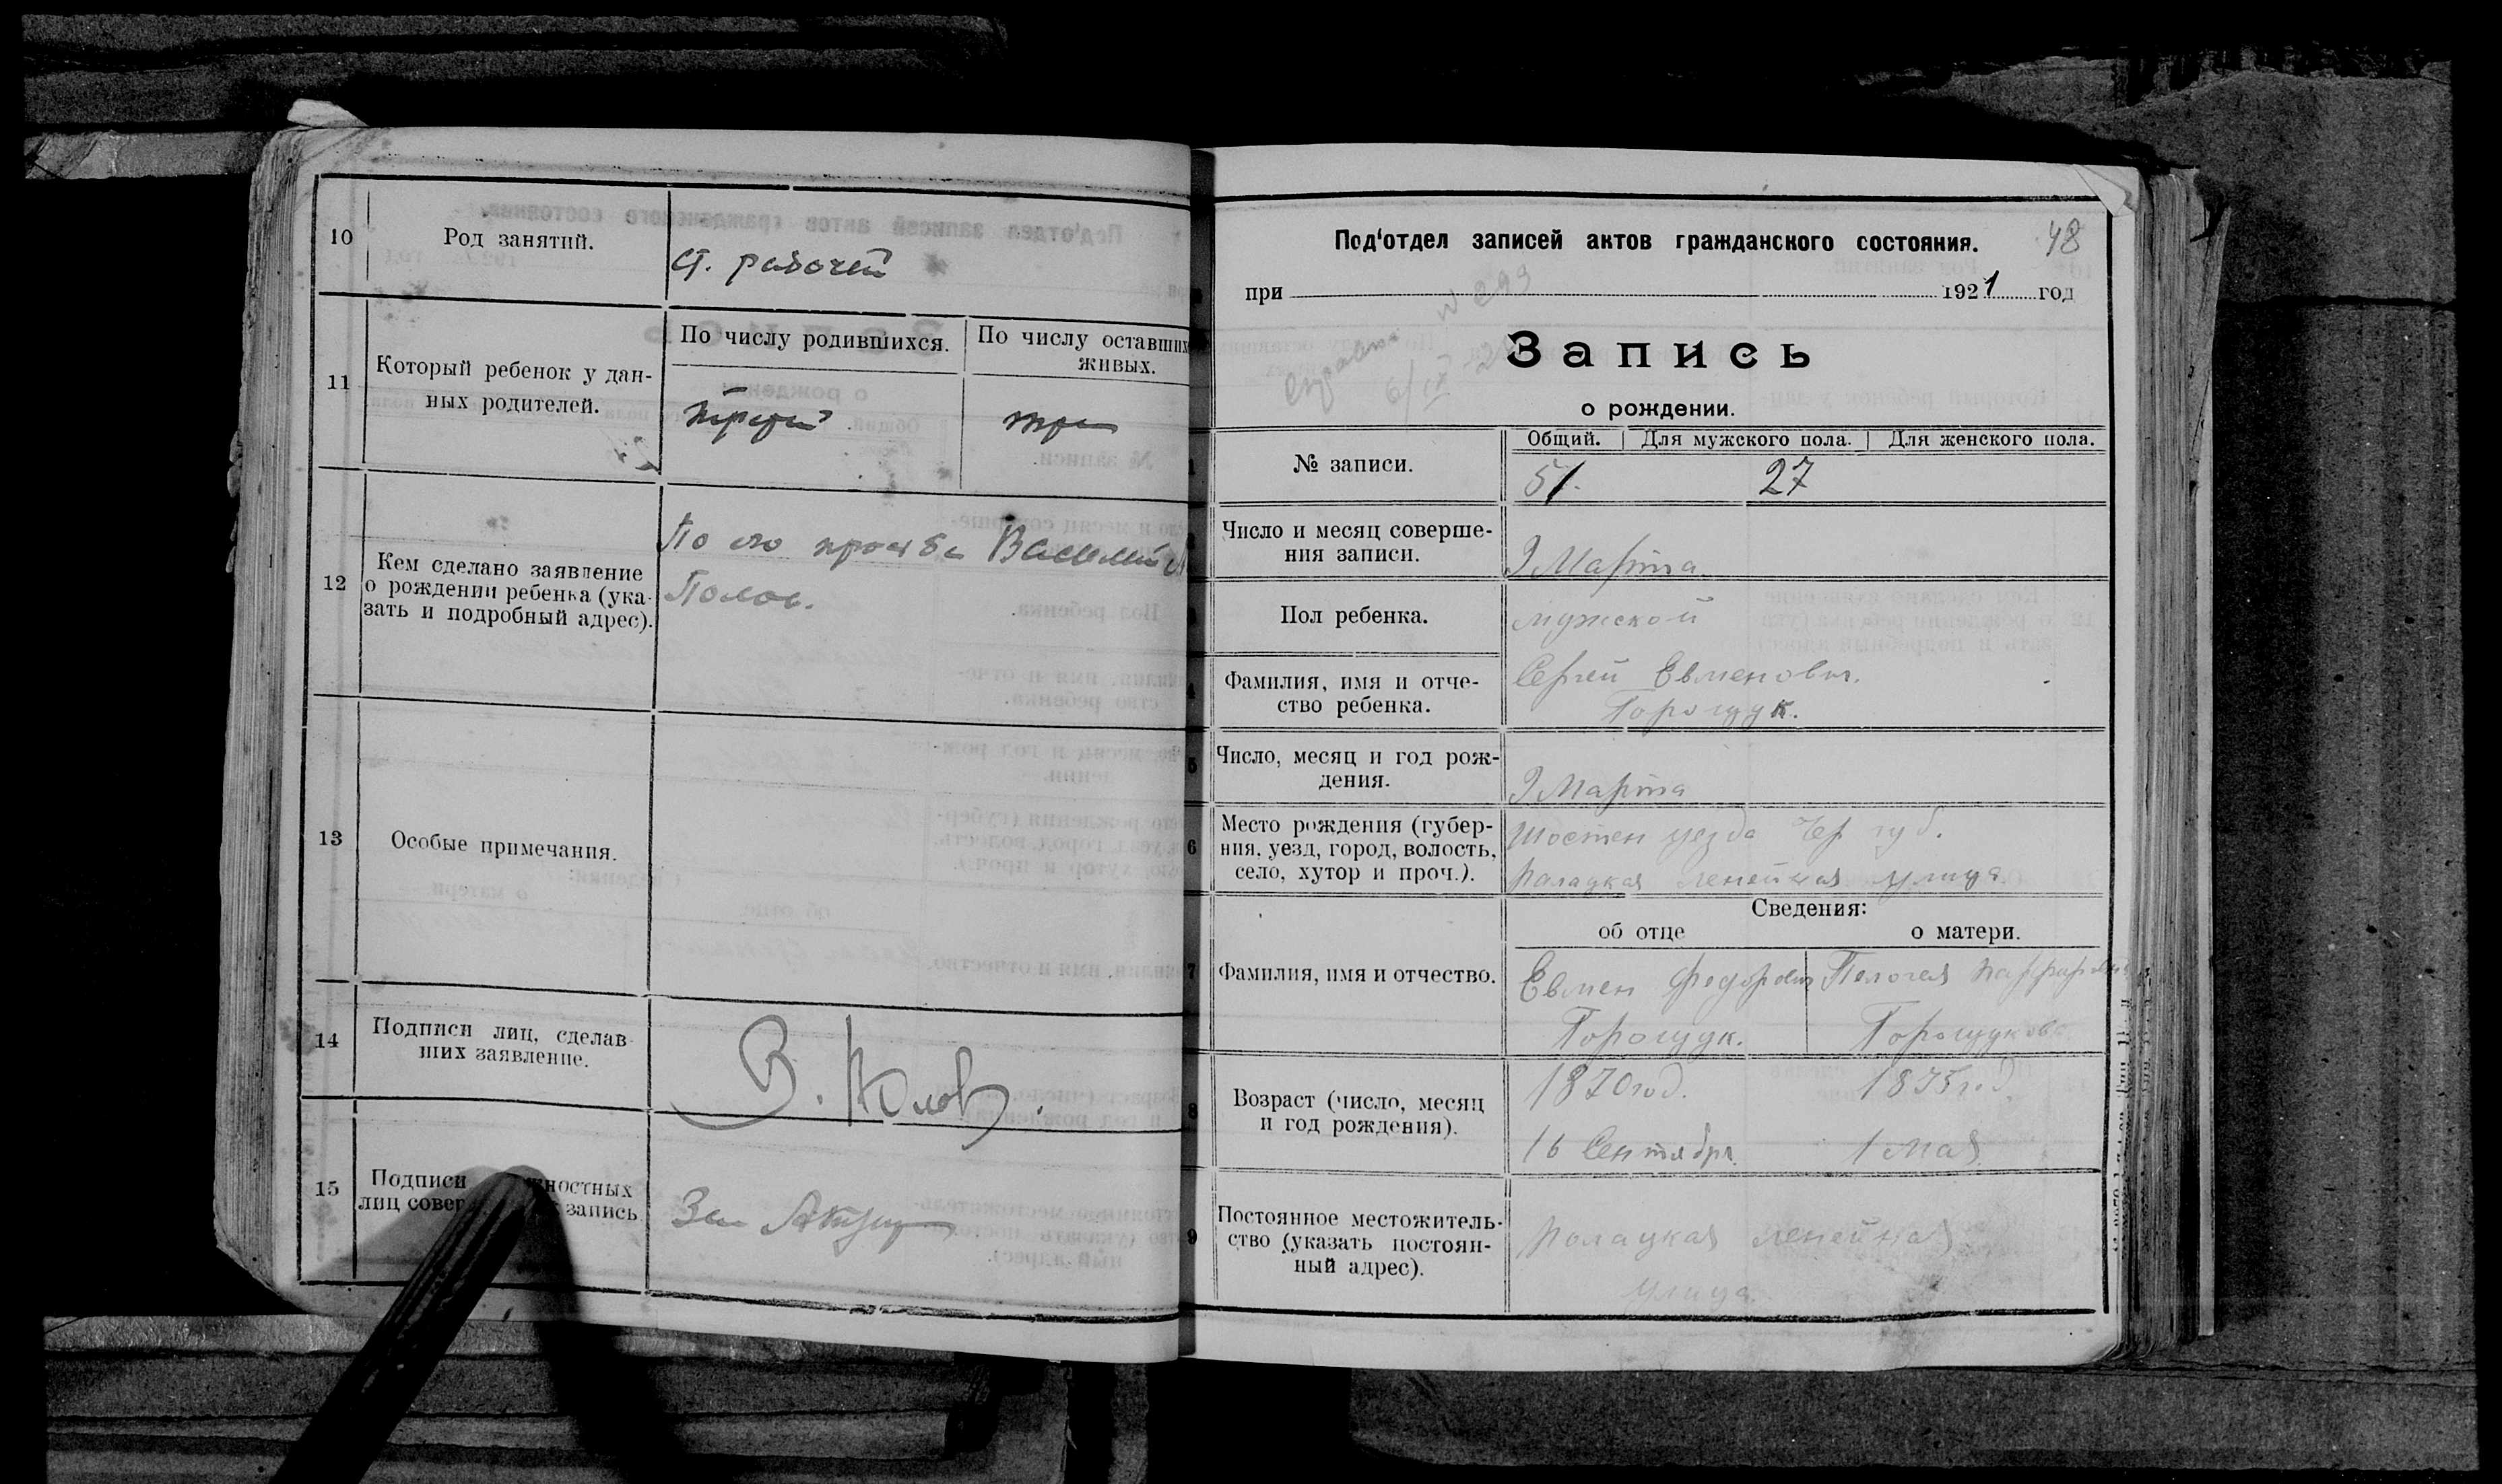 10
Род занятий.
ст. рабочей
11
Который ребенок у дан-
ных родителей.
По числу родившихся.
По числу оставших
живых.
третий
три
12
Кем сделано заявление
о рождении ребенка (ука-
зать и подробный адрес).
По его просьбе Василий
Полов.
13
Особые примечания.
14
Подписи лиц, сделав-
ших заявление.
В.
15
Подписи ностных
лиц совер запись
Зав
Под'отдел записей актов гражданского состояния.
48
при 1921 год
№ 299
Справка
6/IX
Запись
о рождении.
1
№ записи.
Общий. Для мужского пола. Для женского пола.
51. 27
Число и месяц соверше-
ния записи.
9 Марта
Пол ребенка.
мужской
4
Фамилия, имя и отче-
ство ребенка.
Сергей Евменович.
Горощук.
5
Число, месяц и год рож-
дения.
9 Марта
6
Место рождения (губер-
ния, уезд, город, волость,
село, хутор и проч.).
Шостен уезда Чер губ.
ленейная улица.
Сведения:
об отце
о матери.
7
Фамилия, имя и отчество.
Евмен Федорович
Горощук.
Пелогея
Горощукова
8
Возраст (число, месяц
и год рождения).
1870 год.
16 Сентября
1875 год
1 Мая
9
Постоянное местожитель-
ство (указать постоян-
ный адрес).
ленейная
улица.